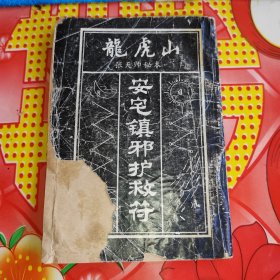 龍虎山
张天师秘本
安宅镇邪护救符